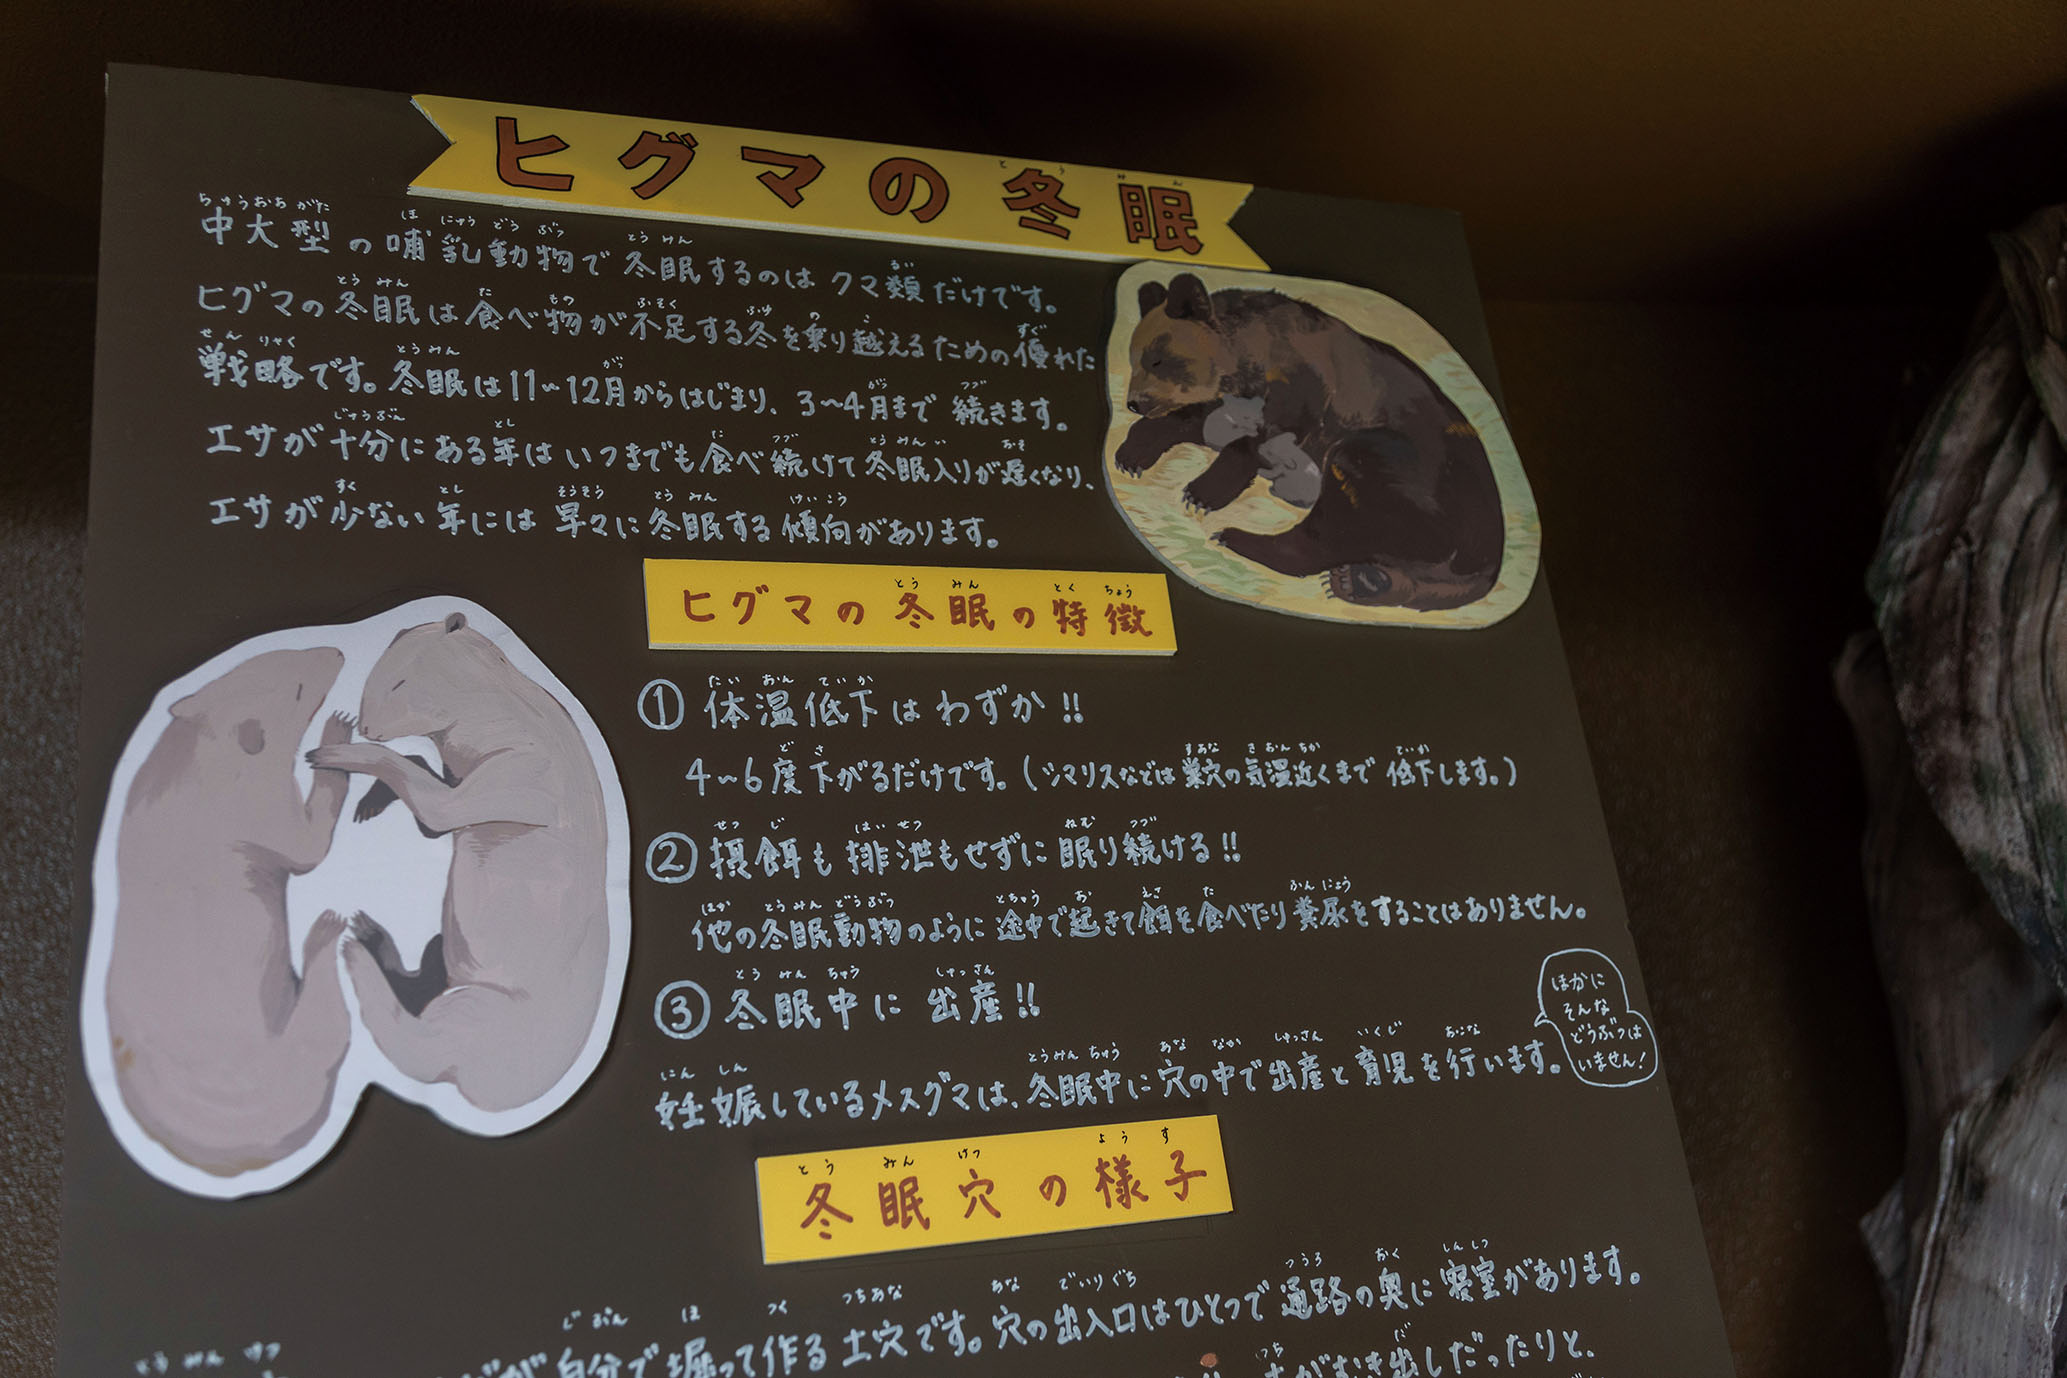 ヒグマの冬眠
中大型の哺乳動物で冬眠するのはクマ類だけです。
ヒグマの冬眠は食べ物が不足する冬を乗り越えるための優れた
戦略です。冬眠は11〜12月からはじまり、3〜4月まで続きます。
エサが十分にある年はいつまでも食べ続けて冬眠入りが遅くなり、
エサが少ない年には早々に冬眠する傾向があります。
ヒグマの冬眠の特徴
① 体温低下はわずか!!
4〜6度下がるだけです。(シマリスなどは巣穴の気温近くまで低下します。)
② 摂餌も排泄もせずに眠り続ける!!
他の冬眠動物のように途中で起きて餌を食べたり糞尿をすることはありません。
③ 冬眠中に出産!!
妊娠しているメスグマは、冬眠中に穴の中で出産と育児を行います。
ほかに
そんな
どうぶつは
いません!
冬眠穴の様子
自分で掘って作る土穴です。穴の出入口はひとつで通路の奥に寝室があります。
むき出しだったりと、